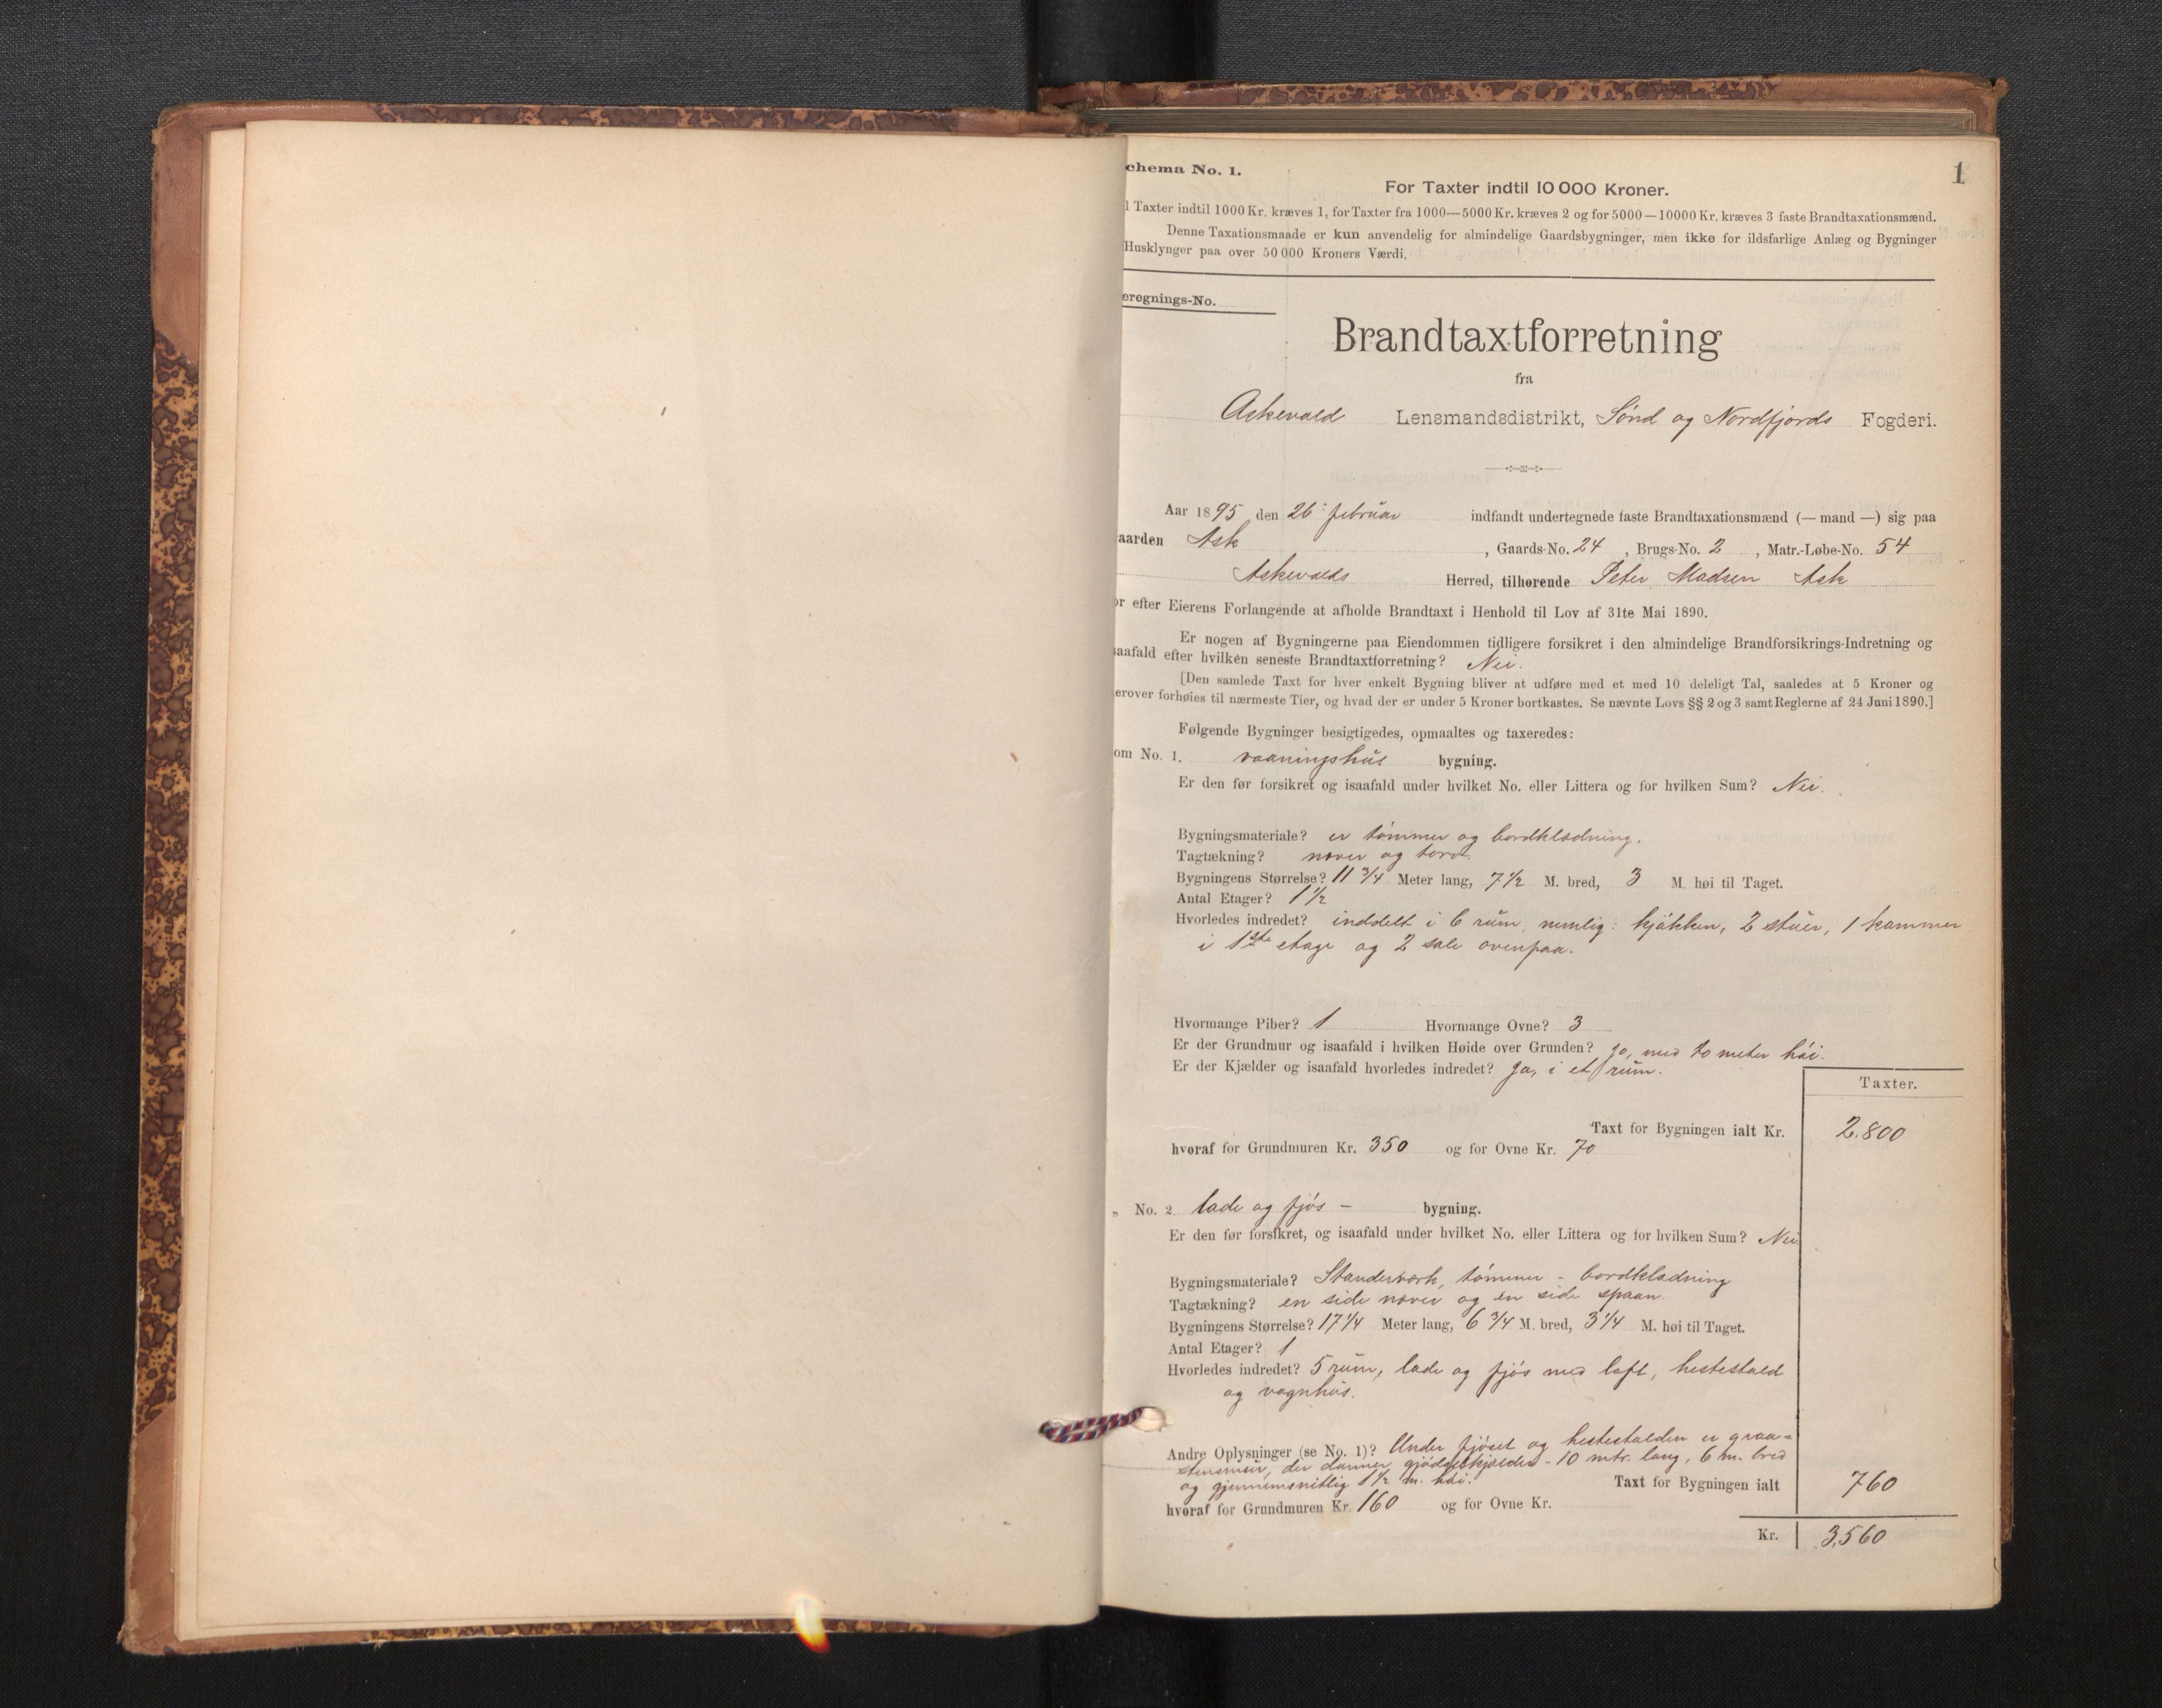 1
chema No. 1.
For Taxter indtil 10 000 Kroner.
l Taxter indtil 1000 Kr. kræves 1, for Taxter fra 1000—5000 Kr. kræves 2 og for 5000—10000 Kr. kræves 3 faste Brandtaxationsmænd.
Denne Taxationsmaade er kun anvendelig for almindelige Gaardsbygninger, men ikke for ildsfarlige Anlæg og Bygninger
Husklynger paa over 50 000 Kroners Værdi.
eregnings-No.
Brandtaxtforretning
fra
Askevold Lensmandsdistrikt, Sönd og Nordfjords Fogderi.
Aar 1895 den 26 februar indfandt undertegnede faste Brandtaxationsmænd (— mand —) sig paa
aarden Ask , Gaards-No. 24 , Brugs-No. 2 , Matr.-Løbe-No. 54
Askevolds Herred, tilhørende Peter Madsen Ask
or efter Eierens Forlangende at afholde Brandtaxt i Henhold til Lov af 31te Mai 1890.
Er nogen af Bygningerne paa Eiendommen tidligere forsikret i den almindelige Brandforsikrings-Indretning og
saafald efter hvilken seneste Brandtaxtforretning? Nei.
[Den samlede Taxt for hver enkelt Bygning bliver at udføre med et med 10 deleligt Tal, saaledes at 5 Kroner og
erover forhøies til nærmeste Tier, og hvad der er under 5 Kroner bortkastes. Se nævnte Lovs §§ 2 og 3 samt Reglerne af 24 Juni 1890.]
Følgende Bygninger besigtigedes, opmaaltes og taxeredes:
om No. 1. vaaningshus bygning.
Er den før forsikret og isaafald under hvilket No. eller Littera og for hvilken Sum? Nei.
Bygningsmateriale? er tömmer og bordklædning.
Tagtækning? næver og torv.
Bygningens Størrelse? 11 3/4 Meter lang, 7 1/2 M. bred, 3 M. høi til Taget.
Antal Etager? 1 1/2
Hvorledes indredet? inddelt i 6 rum, nemlig: kjökken, 2 stuer, 1 kammer
i 1ste etage og 2 sale ovenpaa.
Hvormange Piber? 1 Hvormange Ovne? 3
Er der Grundmur og isaafald i hvilken Høide over Grunden? Ja, med to meter höi.
Er der Kjælder og isaafald hvorledes indredet? Ja, i et rum.
Taxter.
Taxt for Bygningen ialt Kr. 2.800
hvoraf for Grundmuren Kr. 350 og for Ovne Kr. 70
„ No. 2 lade og fjös - bygning.
Er den før forsikret, og isaafald under hvilket No. eller Littera og for hvilken Sum? Nei
Bygningsmateriale? Standerværk, tömmer - bordklædning
Tagtækning? en side næver og en side spaan.
Bygningens Størrelse? 17 1/4 Meter lang, 6 3/4 M. bred, 3 1/4 M. høi til Taget.
Antal Etager? 1
Hvorledes indredet? 5 rum, lade og fjös med loft, hestestald
og vognhus.
Andre Oplysninger (se No. 1)? Under fjöset og hestestalden er graa=
stensmur, der danner gjödselkjælder - 10 mtr. lang, 6 m. bred
og gjennemsnitlig 1 1/2 m. höi. Taxt for Bygningen ialt 760
hvoraf for Grundmuren Kr. 160 og for Ovne Kr.
Kr. 3.560